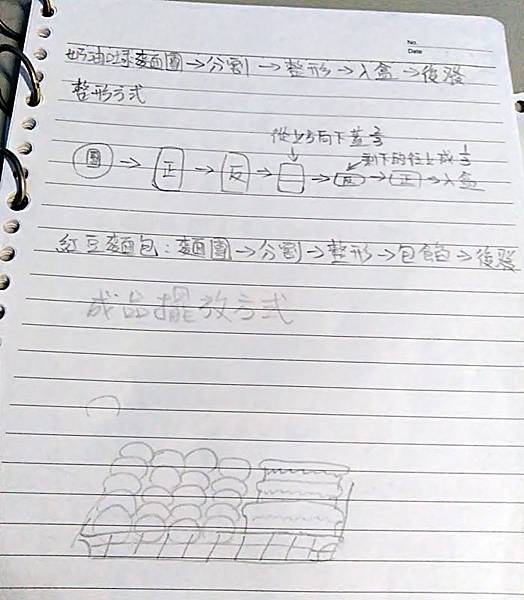 No.
Date
奶油球麵團→分割→整形→入盒→後發
整形方式
從上方向下蓋⅔
剩下的往上成⅓
圓→正→反→→反→正→入盒
紅豆麵包:麵團→分割→整形→包餡→後發
成品擺放方式